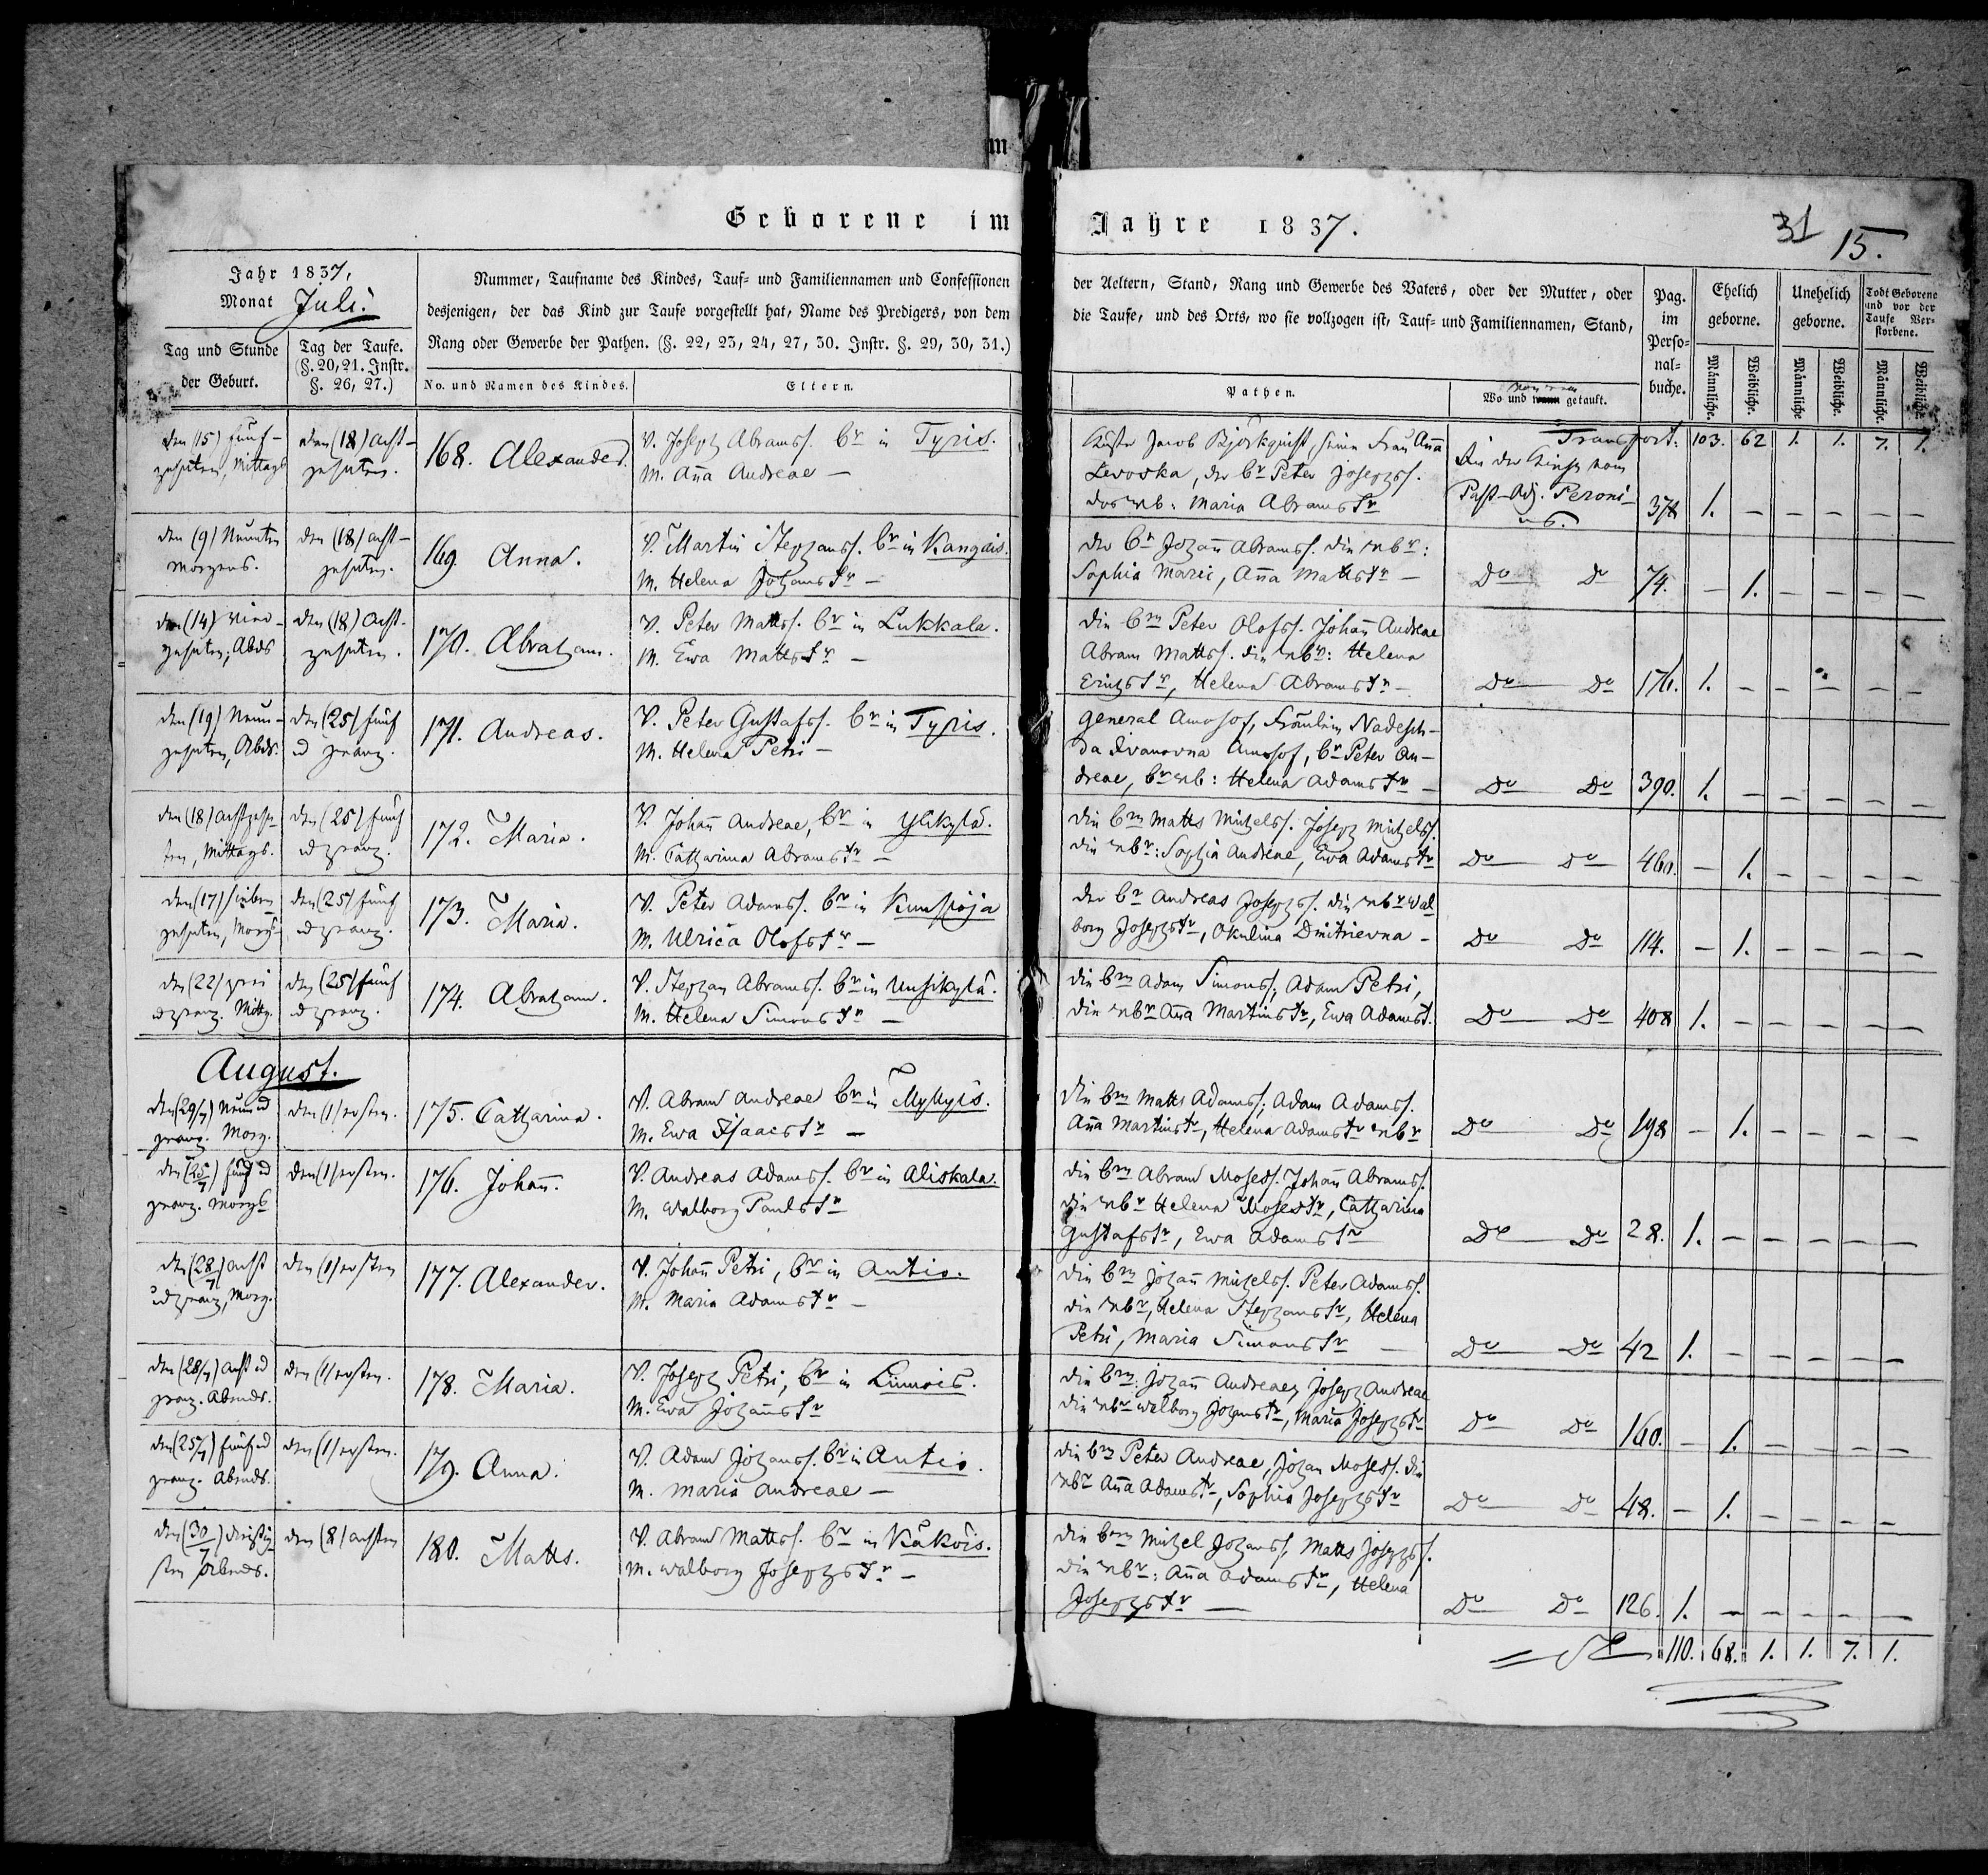 m
Geborene im Jahre 1837.
31 15.
Jahr 1837,
Monat Juli.
Tag und Stunde
der Geburt.
Tag der Taufe.
(§. 20, 21. Instr.
§. 26, 27.)
Nummer, Taufname des Kindes, Tauf- und Familiennamen und Confessionen
desjenigen, der das Kind zur Taufe vorgestellt hat, Name des Predigers, von dem
Rang oder Gewerbe der Pathen. (§. 22, 23, 24, 27, 30. Instr. §. 29, 30, 31.)
No. und Namen des Kindes.
Eltern.
der Aeltern, Stand, Rang und Gewerbe des Vaters, oder der Mutter, oder
die Taufe, und des Orts, wo sie vollzogen ist, Tauf- und Familiennamen, Stand,
Pathen.
Wo und wann getauft.
Pag.
im
Perso-
nal-
buche.
Ehelich
geborne.
Unehelich
geborne.
Todt Geborene
und vor der
Taufe Ver-
storbene.
Männliche.
Weibliche.
Männliche
Weibliche.
Männliche.
Weibliche.
Transport: 103. 62 1. 1. 7. 1.
den (15) fünf-
zehnten, Mittags
den (18) acht-
zehnten.
168. Alexander.
V. Joseph Abramss. br in Typis.
M. Aña Andreae —
Küster Jacob Bjorkquist, seine Frau Aña
Levoska, der br Peter Josephss.
das wb: Maria Abramstr
In der Kirche vom
Past-Adj. Peroni-
us.
378 1. — — — — —
den (9) Neunten
morgens.
den (18) acht-
zehnten.
169. Anna.
V. Martin Stephanss. br in Kangais.
M. Helena Johanstr —
der br Johañ Abramss. die wbr:
Sophia Marci, Aña Mattstr —
Do Do 74. — 1. — — — —
den (14) vier-
zehnten, Abds
den (18) Acht-
zehnten.
170. Abraham.
V. Peter Mattss. br in Lukkala.
M. Ewa Mattstr —
die brn Peter Olofss. Johañ Andreae
Abram Mattss. die wbr: Helena
Erichstr, Helena Abramstr —
Do Do 176. 1. — — — — —
den (19) Neun-
zehnten, Abds.
den (25) fünf
ud zwanz.
171. Andreas.
V. Peter Gustafss. br in Typis.
M. Helena Petri —
General Amosof, Fräulein Nadesch-
da Ivanovna Amosof, br Peter An-
dreae, br wb: Helena Adamstr —
Do Do 390. 1. — — — — —
den (18) achtzehn-
ten, Mittags.
den (25) fünf
ud zwanz.
172. Maria.
V. Johañ Andreae, br in Ylikylä.
M. Catharina Abramstr —
die brn Matts Michelss. Joseph Michelss.
die wbr: Sophia Andreae, Ewa Adamstr
Do Do 460. — 1. — — — —
den (17) sieben
zehnten, Morgs
den (25) fünf
ud zwanz.
173. Maria.
V. Peter Adamss. br in
M. Ulrica Olofstr —
der br Andreas Josephss. die wbr Wal
borg Josephstr, Okulina Dmitrievna —
Do Do 114. — 1. — — — —
den (22) zwei
ud zwanz. Mittg.
den (25) fünf
ud zwanz.
174. Abraham.
V. Stephan Abramss. br in Uusikylä.
M. Helena Simonstr —
die brn Adam Simonss, Adam Petri,
die wbr Aña Martinstr, Ewa Adamst.
Do Do 408 1. — — — — —
August.
den (29/7) Neun ud
zwanz. Morg.
den (1) ersten.
175. Catharina.
V. Abram Andreae br in Myllyis.
M. Ewa Isaacstr —
die brn Matts Adamss, Adam Adamss.
Aña Martinstr, Helena Adamstr wbr
Do Do 198 — 1. — — — —
den (25/7) fünf ud
zwanz. morgs
den (1) ersten.
176. Johañ.
V. Andreas Adamss. br in Aliskala.
M. Walborg Paulstr
die brn Abram Mosess. Johañ Abramss.
die wbr Helena Mosestr, Catharina
Gustafstr, Ewa Adamstr
Do Do 28. 1. — — — — —
den (28/7) acht
ud zwanz, Morg.
den (1) ersten
177. Alexander.
V. Johañ Petri, br in Antis.
M. Maria Adamstr —
die brn Johañ Michelss. Peter Adamss.
die wbr, Helena Stephanstr, Helena
Petri, Maria Simonstr —
Do Do 42 1. — — — — —
den (28/7) acht ud
zwanz. Abends.
den (1) ersten.
178. Maria.
V. Joseph Petri, br in
M. Ewa Johañstr
die brn: Johañ Andreae, Joseph Andreae
die wbr Walborg Johanstr, Maria Josephstr
Do Do 160. — 1. — — — —
den (25/7) fünf ud
zwanz. Abends.
den (1) ersten.
179. Anna.
V. Adam Johanss. br in Antis.
M. Maria Andreae —
die brn Peter Andreae, Johan Mosess. die
wbr Aña Adamstr, Sophia Josephstr
Do Do 48. — 1. — — — —
den (30/7) dreißig-
sten Abends.
den (8) achten
180. Matts.
V. Abram Mattss. br in Käkois.
M. Walborg Josephstr —
die brn Michel Johanss, Matts Josephss.
die wbr: Aña Adamstr, Helena
Josephstr —
Do Do 126. 1. — — — — —
110. 68. 1. 1. 7. 1.